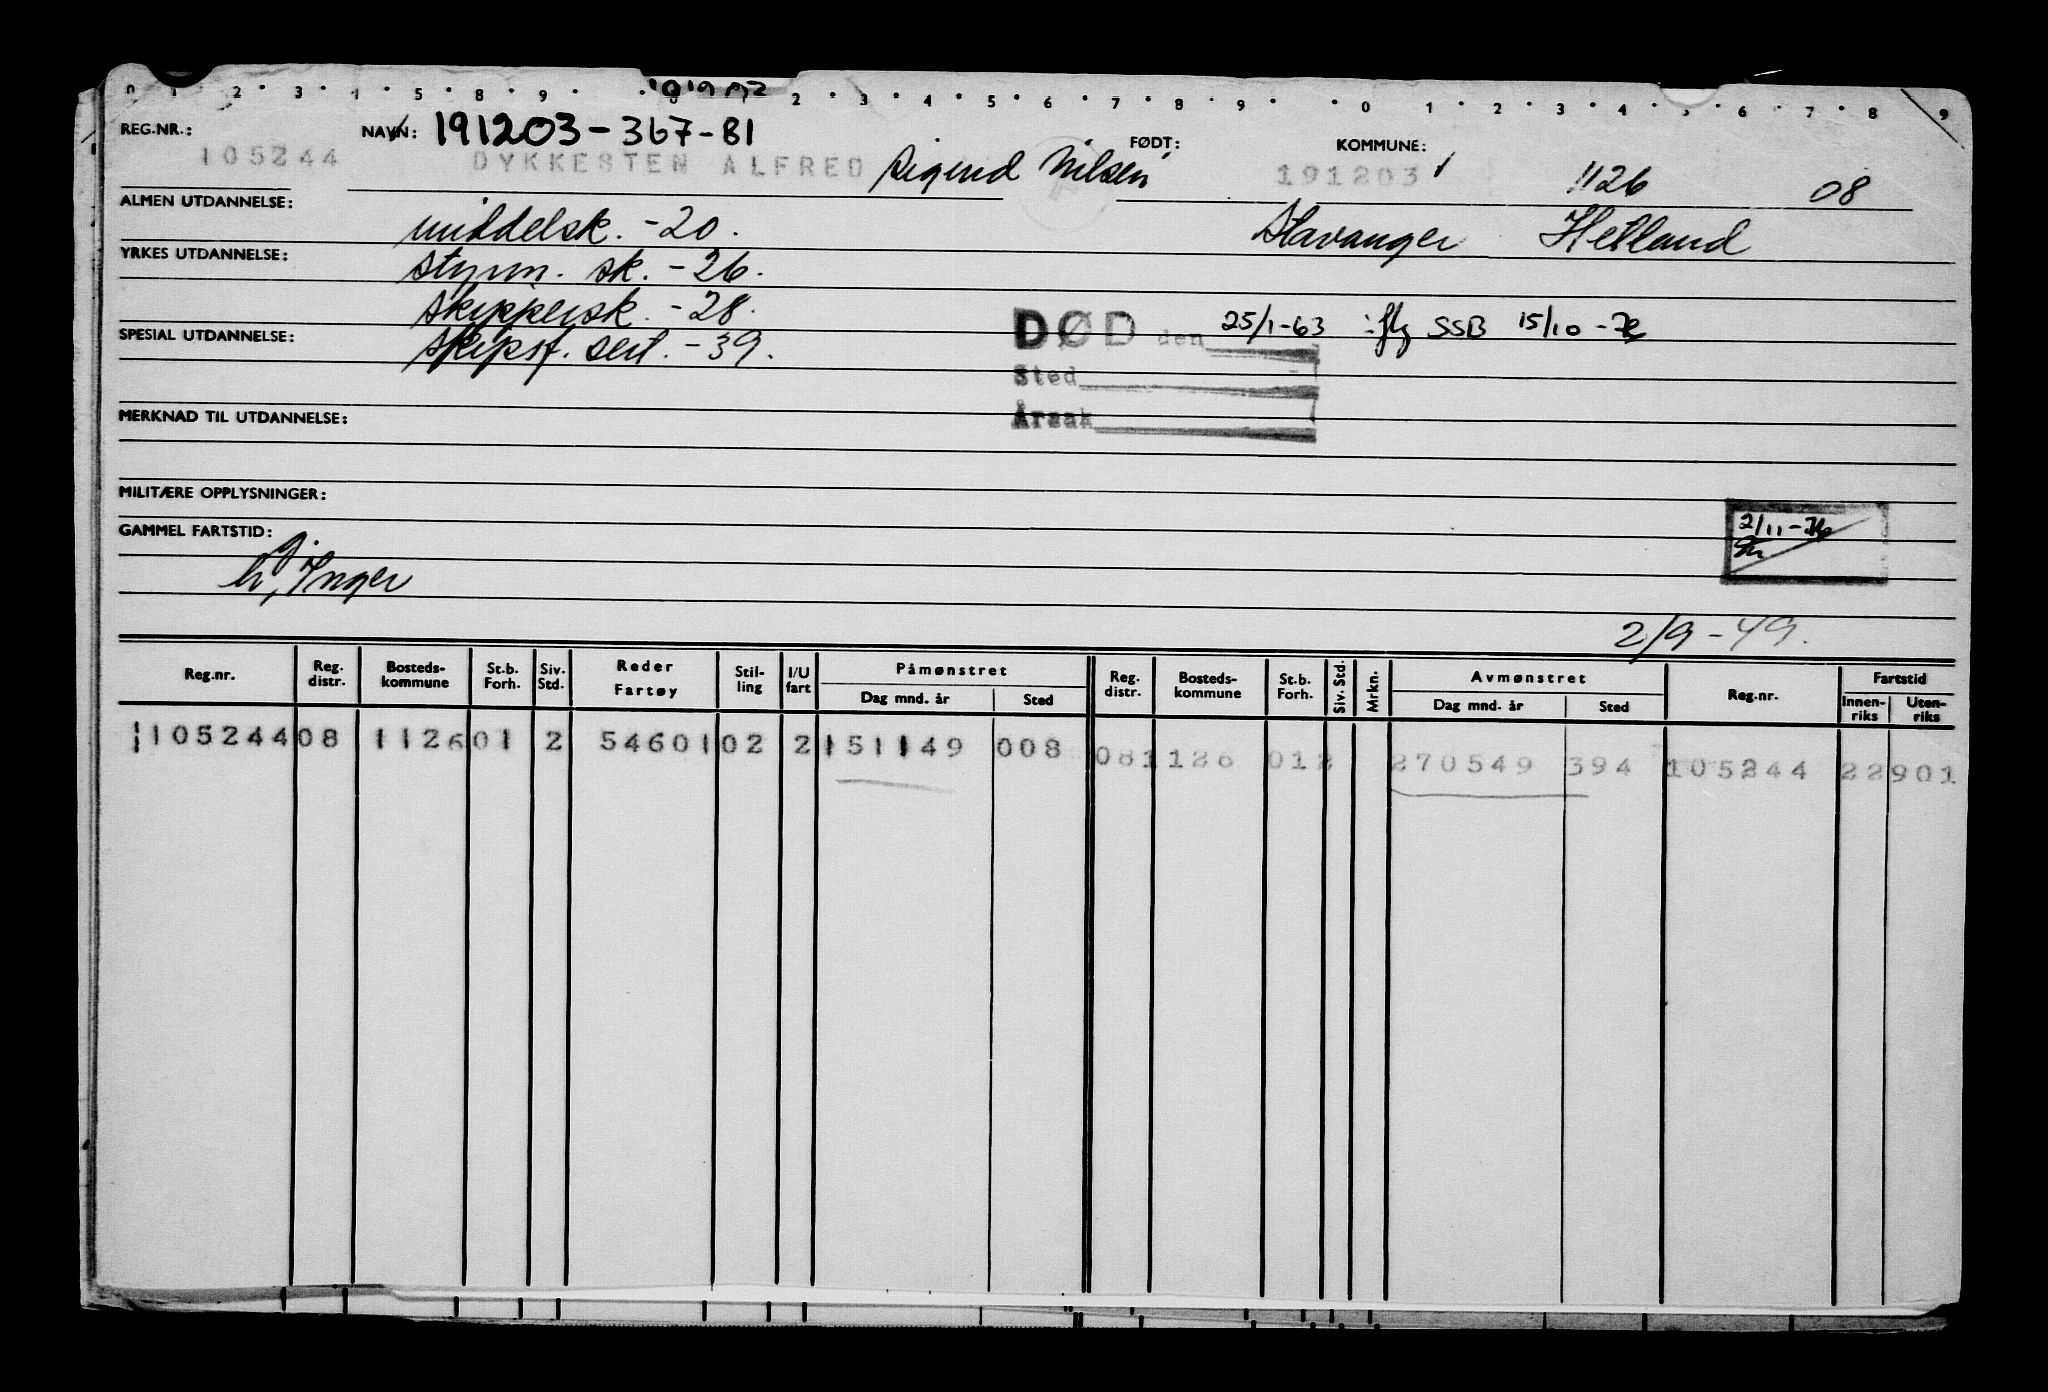 0 1 2 3 4 5 8 9 2 3 4 5 6 7 8 9 0 1 2 3 4 5 6 7 8 9
REG.NR.: NAVN: 191203-367-81 FØDT: KOMMUNE:
105244 DYKKESTEN ALFRED Sigurd Nilsen 191203 1126 08
ALMEN UTDANNELSE: middelsk. -20. Stavanger Hetland
YRKES UTDANNELSE: styrm. sk. -26.
skippersk. -28. DØD den 25/1-63 flg SSB 15/10-
SPESIAL UTDANNELSE: skipsf. sert. -39.
Sted
Årsak
MERKNAD TIL UTDANNELSE:
MILITÆRE OPPLYSNINGER:
2/11-76
GAMMEL FARTSTID:
Inger
2/9-49.
Reg.nr. Reg. distr. Bosteds-kommune St.b. Forh. Siv. Std. Reder Fartøy Stil-ling I/U fart Påmønstret Dag mnd. år Sted Reg. distr. Bosteds-kommune St.b. Forh. Siv. Std. Mrkn. Avmønstret Dag mnd. år Sted Reg.nr. Fartstid Innen-riks Uten-riks
105244 08 1126 01 2 54601 02 2 151149 008 08 1126 01 2 270549 394 105244 22 901